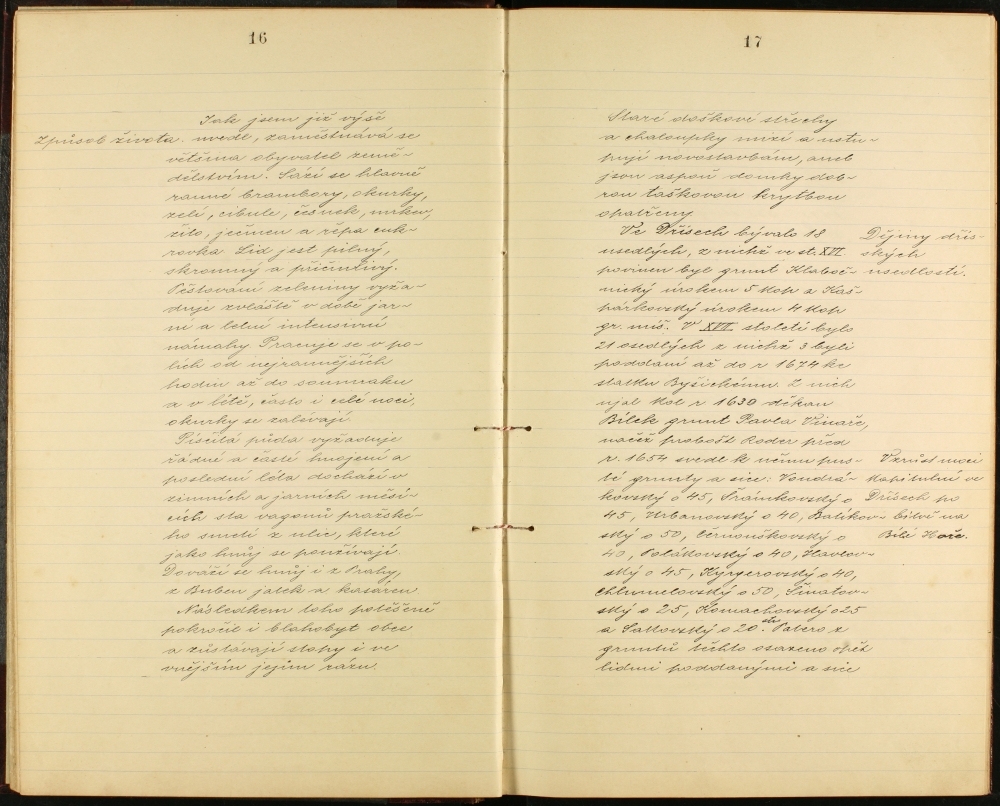 16
Způsob života.
Jak jsem již výše
uvedl, zaměstnává se
většina obyvatel země-
dělstvím. Sází se hlavně
ranné brambory, okurky,
zelí, cibule, česnek, mrkev,
žito, ječmen a řepa cuk-
rovka. Lid jest pilný,
skromný a přičinlivý.
Pěstování zeleniny vyža-
duje zvláště v době jar-
ní a letní intensivní
námahy. Pracuje se v po-
lích od nejrannějších
hodin až do soumraku
a v létě, často i celé noci,
okurky se zalévají.
Písčitá půda vyžaduje
řádné a časté hnojení a
poslední léta dochází v
zimních a jarních měsí-
cích sta vagonů pražské-
ho smetí z ulic, které
jako hnůj se používají.
Dováží se hnůj i z Prahy,
z Buben jatek a kasáren
Následkem toho potěšeně
pokročil i blahobyt obce
a zůstávají stopy i ve
vnějším jejím rázu.
17
Staré doškové střechy
a chaloupky mizí a ustu-
pují novostavbám, aneb
jsou aspoň domky dob-
rou taškovou krytbou
opatřeny.
Dějiny dřís-
ských
usedlostí.
Ve Dřísech bývalo 18
usedlých, z nichž ve st. XVI
povinen byl grunt Klaboč-
nický úrokem 5 kop a Kaš-
párkovský úrokem 4 kop
gr. míš. V XVII století bylo
21 osedlých z nichž 3 byli
poddaní až do r 1674 ke
statku Byšickému. Z nich
ujal kol r 1630 děkan
Bílek grunt Pavla Vinaře,
načež probošt Roder před
r. 1654 svedl k němu pus-
té grunty a sice: Vondrá-
kovský o 45, Šrámkovský o
45, Urbanovský o 40, Balíkov-
ský o 50, Černouškovský o
40, Polákovský o 40, Havlov-
ský o 45, Kyrgerovský o 40,
Chlumelovský o 50, Šmatov-
ský o 25, Komachovský o 25
a Satlovský o 20 str. Patero z
gruntů těchto osazeno opět
lidmi poddanými a sice
Vzrůst moci
kapitulní ve
Dřísech po
bitvě na
Bílé Hoře.